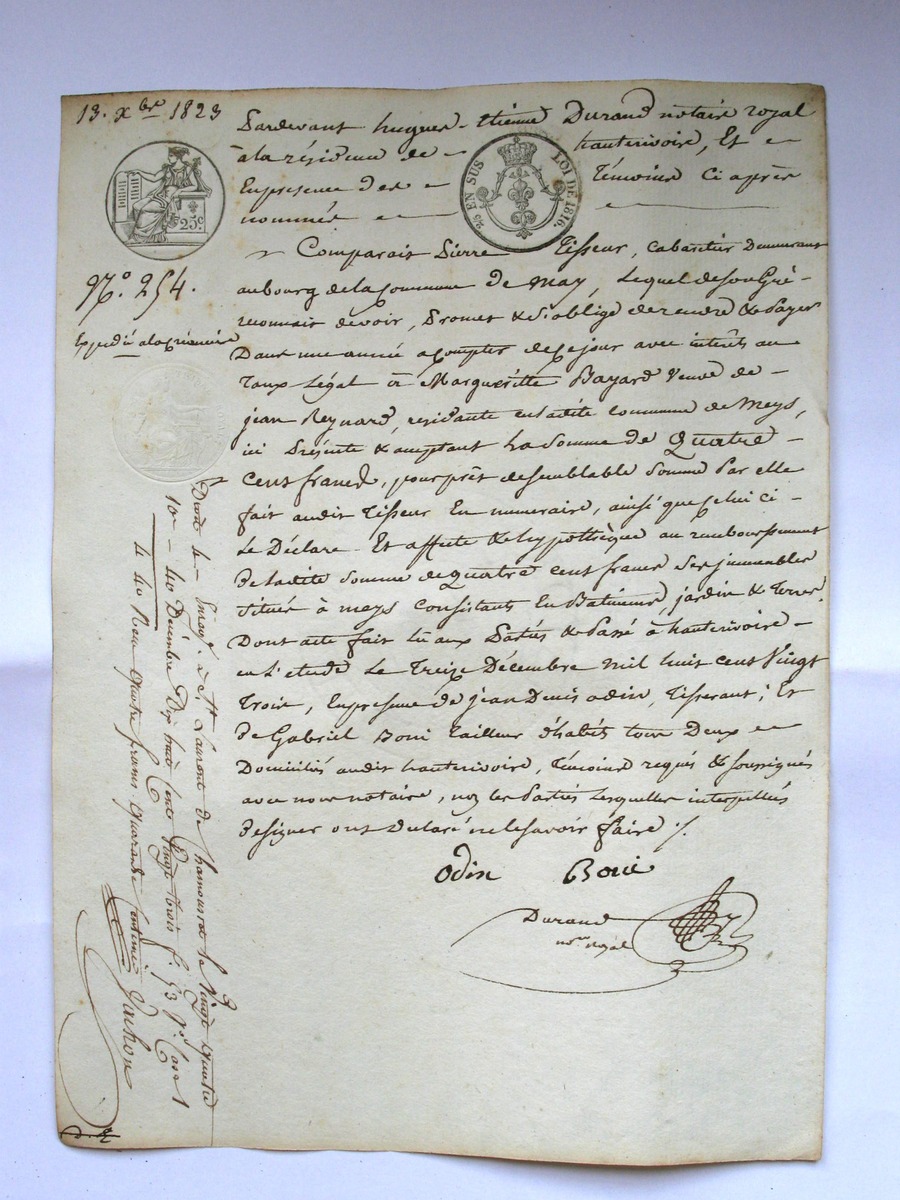 13. Xbre 1823
25c
25 EN SUS LOI DE 1816.
No. 254.
Expédié à la créancière
Pardevant hugues-Etienne Durand notaire royal
à la résidence de hauterivoire, Et
En présence des Témoins Ci après
nommés
Comparait Pierre Tisseur, Cabaretier Demeurant
au bourg de la Commune de May, Lequel de Son Gré
reconnait devoir, Promet & s'oblige de rendre & Payer
Dans une année a compter de Ce jour avec intérêts au
Taux Légal à Margueritte Bayard Veuve de
jean Reynard, residante en ladite Commune de Meys,
ici Présente & acceptant la Somme de Quatre
Cent francs, pour prêt de semblable Somme Par elle
fait audit Tisseur En numeraire, ainsi que Celui ci
Le Déclare. Et affecte & hypothèque au remboursement
De ladite Somme de Quatre Cent francs Ses immeubles
Situés à Meys Consistants En Batiments, jardin & Terres.
Dont acte fait lu aux Parties & Passé à hauterivoire
en L'etude Le Treize Décembre Mil huit cent Vingt
Trois, En presence de jean Denis Odin, Tisserant; Et
de Gabriel Boni Tailleur d'habits tous Deux
Domiciliés audit hauterivoire, Témoins requis & soussignés
avec nous notaire, non les Parties Lesquelles interpellées
de signer ont Déclaré ne le savoir faire ./.
Odin Boni
Durand
nore royal
Enreg. à St Laurent de Chamousset le Vingt quatre
Décembre Dix huit Cent Vingt trois f. 53 Vo. Case 1
Reçu quatre francs quarante Centimes
Vachon